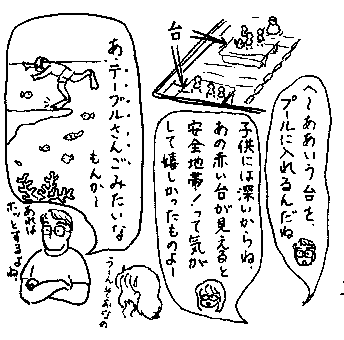 台
へ〜ああいう台を、
プールに入れるんだね
子供には深いからね、
あの赤い台が見えると
安全地帯!って気が
して嬉しかったものよー
あ、テーブルさんごみたいな
もんか〜
あれは
ホッとするよね